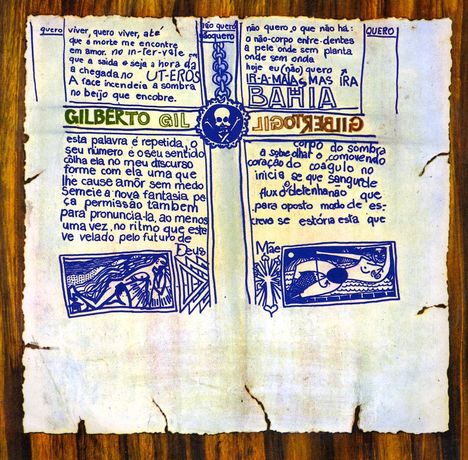 quero
viver, quero viver, até
que a morte me encontre
em amor. no in-ter-vale em
que a saída e seja a hora da
a chegada. no UT-EROS
A face incendeia a sombra
no beijo que encobre.
GILBERTO GIL
esta palavra é repetida, o
seu número é o seu sentido
colha ela no meu discurso
forme com ela uma que
lhe cause amor sem medo
semeie a nova fantasia pe
ça permissão também
para pronuncia-la, ao menos
uma vez, no ritmo que este
ve velado pelo futuro de
Deus
não quero
nãoquero
não quero o que não há:
o não-corpo entre-dentes
a pele onde sem planta
onde sem onda
hoje eu (não) quero
IR-A-MAIS, MAS IRA
BAHIA
QUERO
GILBERTO GIL
corpo da sombra
a sobre olhar o comovendo
coração do coagulo no
inicia se que sangurde
fluxo detenha não que
para oposto modo de es-
creva se estória esta que
Mãe